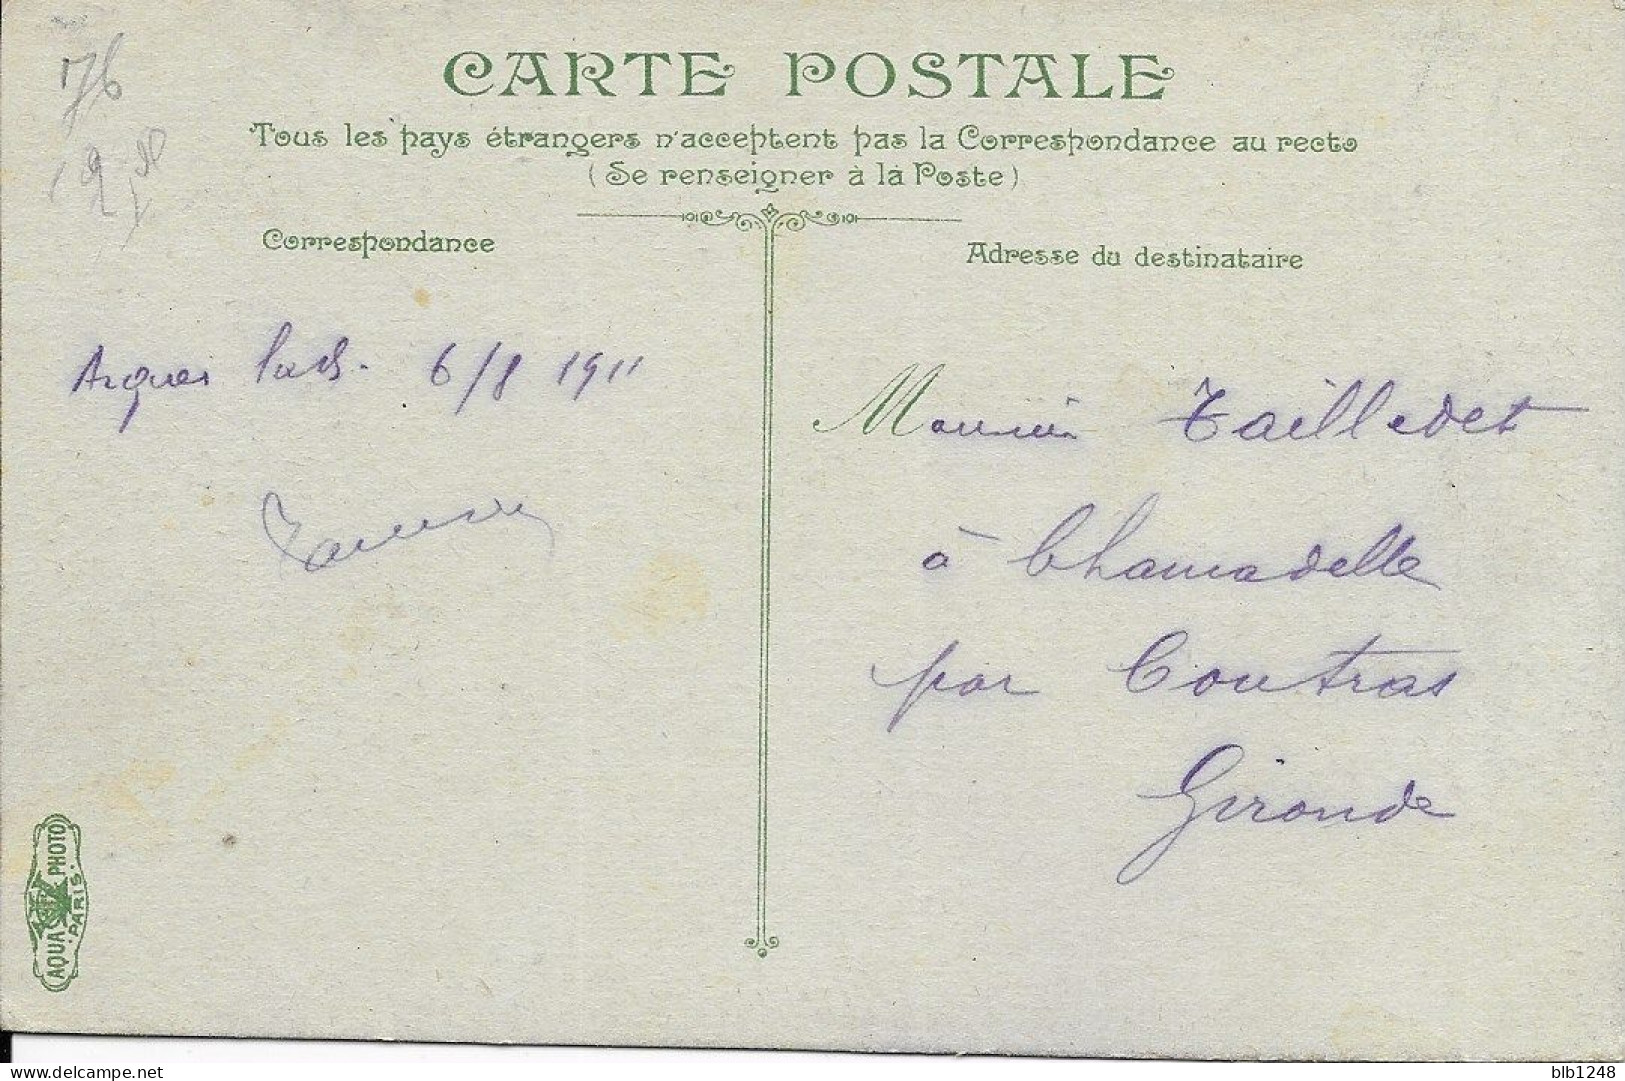 76
CARTE POSTALE
Tous les pays étrangers n'acceptent pas la Correspondance au recto
(Se renseigner à la Poste)
Correspondance
Adresse du destinataire
6/8 1911
Monsieur Tailledet
à Chamadelle
par Coutras
Gironde
AQUA PHOTO
PARIS
delcampe.net
blb1248